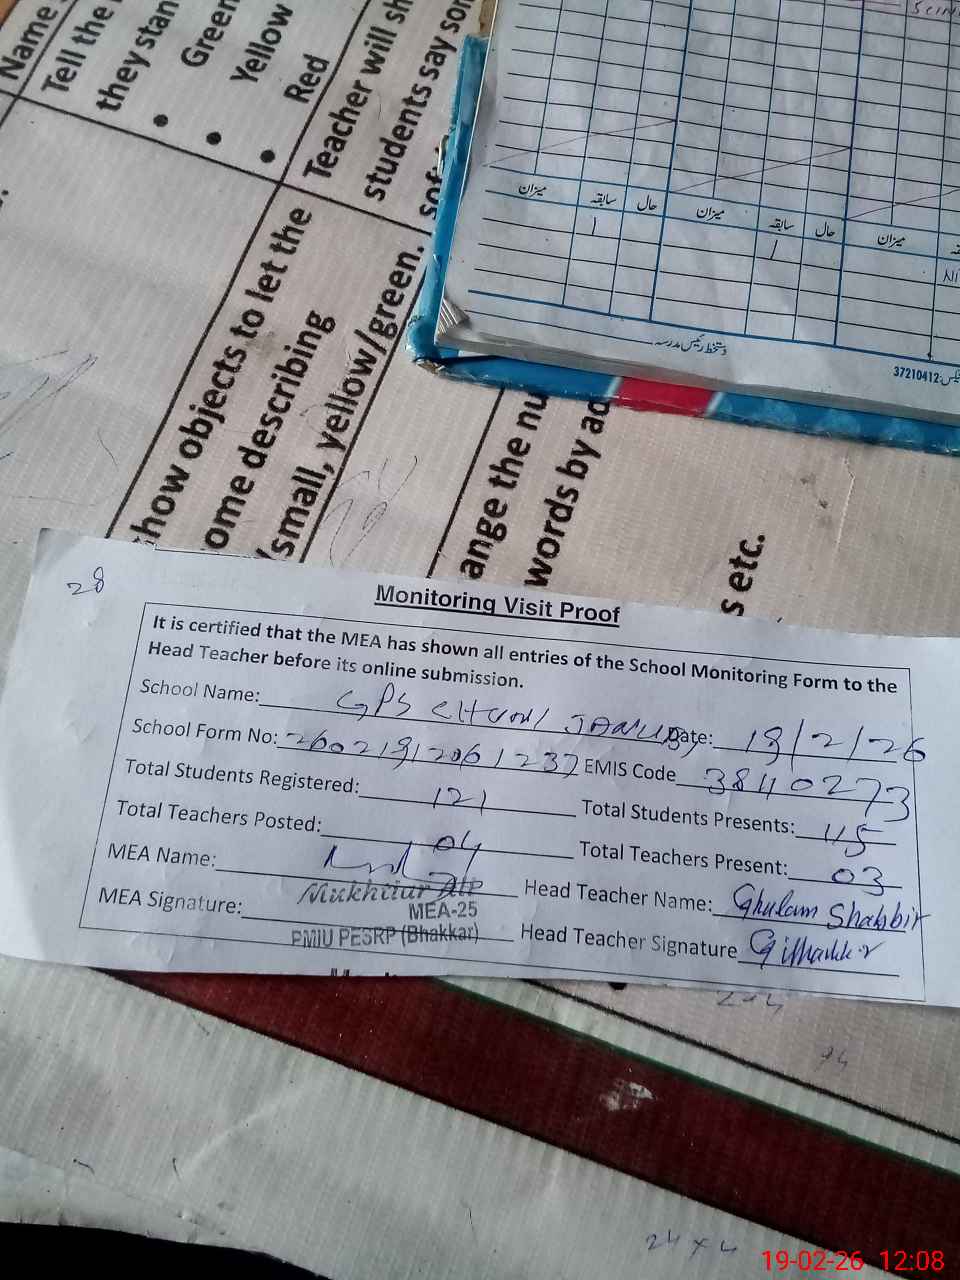 Name
Tell the
they stan
• Green
• Yellow
• Red
Teacher will sh
students say som
how objects to let the
ome describing
/small, yellow/green.
ange the nu
words by ad
s etc.
میزان سابقہ حال میزان سابقہ حال میزان
دستخط رئیس مدرسہ
37210412
28
Monitoring Visit Proof
It is certified that the MEA has shown all entries of the School Monitoring Form to the
Head Teacher before its online submission.
School Name: GPS Date: 19/2/26
School Form No: EMIS Code 38110273
Total Students Registered: 121 Total Students Presents: 115
Total Teachers Posted: 04 Total Teachers Present: 03
MEA Name: Mukhtiar Head Teacher Name: Ghulam Shabbir
MEA Signature: MEA-25 Head Teacher Signature
PMIU PESRP (Bhakkar)
24 x 4
19-02-26 12:08